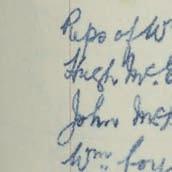 Reps of W
Hugh Mc
John Mc
Wm